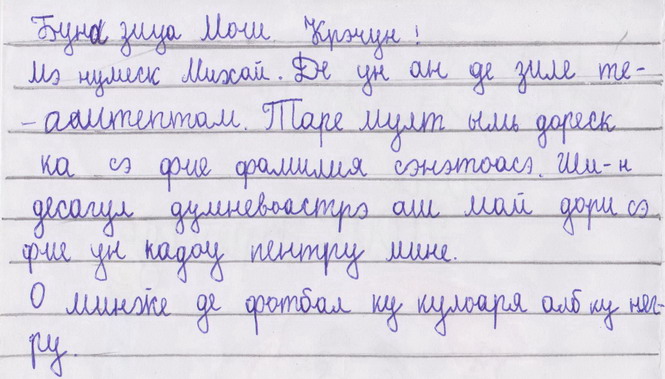 Бунэ зиуа Мош Крэчун!
Мэ нумеск Михай. Де ун ан де зиле те-
-аштептам. Таре мулт ымь дореск
ка сэ фие фамилия сэнэтоасэ. Ши-н
десагул думневоастрэ аш май дори сэ
фие ун кадоу пентру мине.
О минже де фотбал ку кулоаря алб ку нег-
ру.